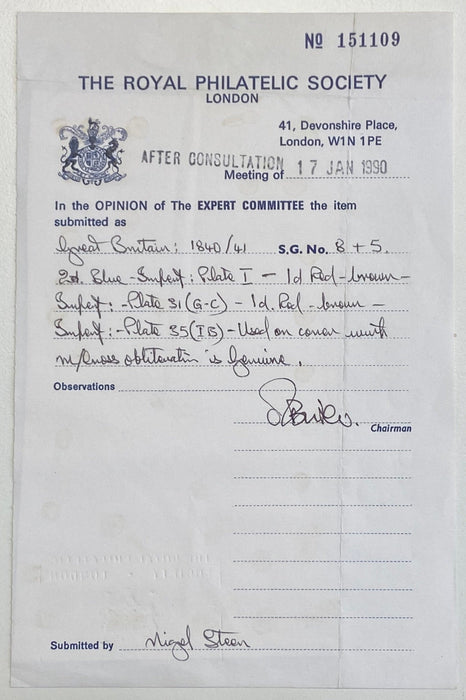 Nº 151109
THE ROYAL PHILATELIC SOCIETY
LONDON
41, Devonshire Place,
London, W1N 1PE
AFTER CONSULTATION
Meeting of 17 JAN 1990
In the OPINION of The EXPERT COMMITTEE the item
submitted as
Great Britain: 1840/41 S.G. No. 8 + 5.
2d. Blue - Imperf: Plate I - 1d Red-brown -
Imperf: - Plate 31 (G-C) - 1d. Red-brown -
Imperf: - Plate 35 (IB) - Used on cover with
m/cross obliteration is Genuine.
Observations
Chairman
Submitted by Nigel Steen